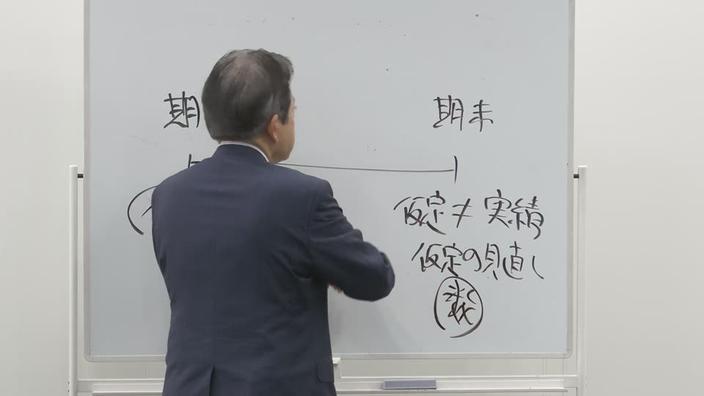 期
期末
仮定≠実績
仮定の見直し